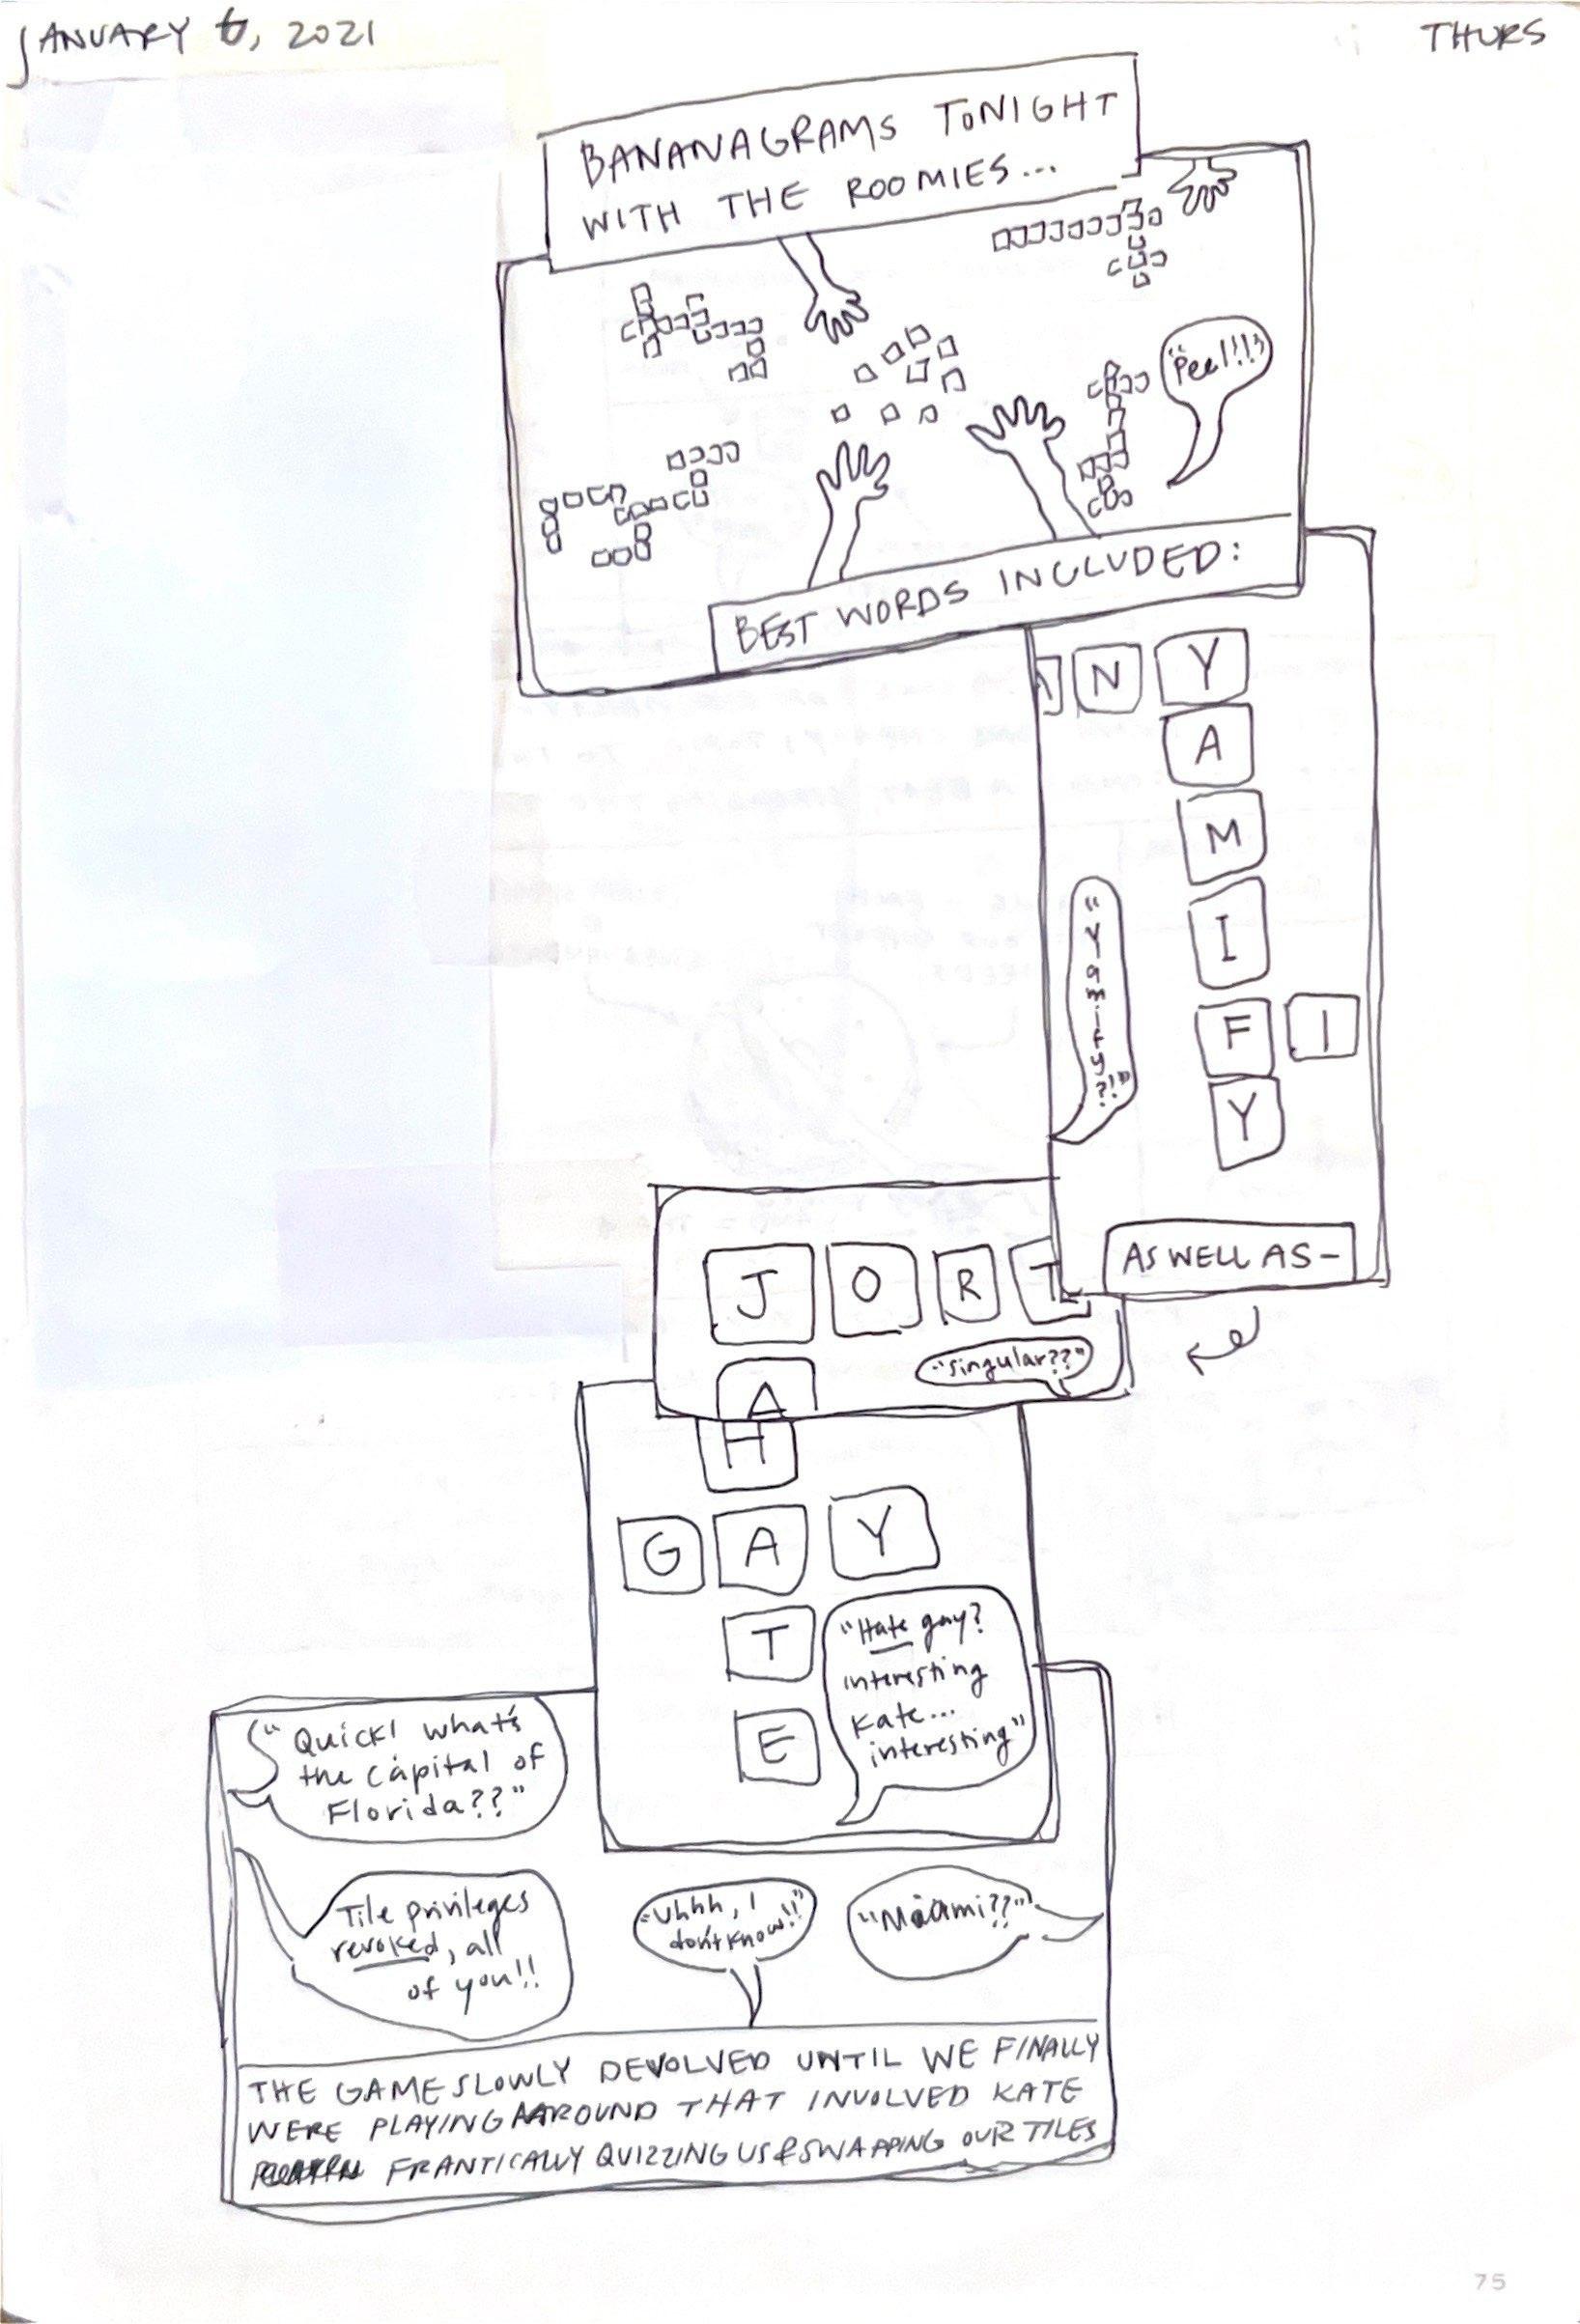 JANUARY 6, 2021
THURS
BANANAGRAMS TONIGHT
WITH THE ROOMIES...
"Peel!!!"
BEST WORDS INCLUDED:
N Y
A
M
I
F I
Y
"Yamify?!"
AS WELL AS-
J O R T
"singular??"
A
H
G A Y
T
E
"Hate gay?
interesting
Kate...
interesting"
"Quick! what's
the capital of
Florida??"
Tile privileges
revoked, all
of you!!
"Uhhh, I
don't know!!"
"Miami??"
THE GAME SLOWLY DEVOLVED UNTIL WE FINALLY
WERE PLAYING AROUND THAT INVOLVED KATE
FRANTICALLY QUIZZING US & SWAPPING OUR TILES
75